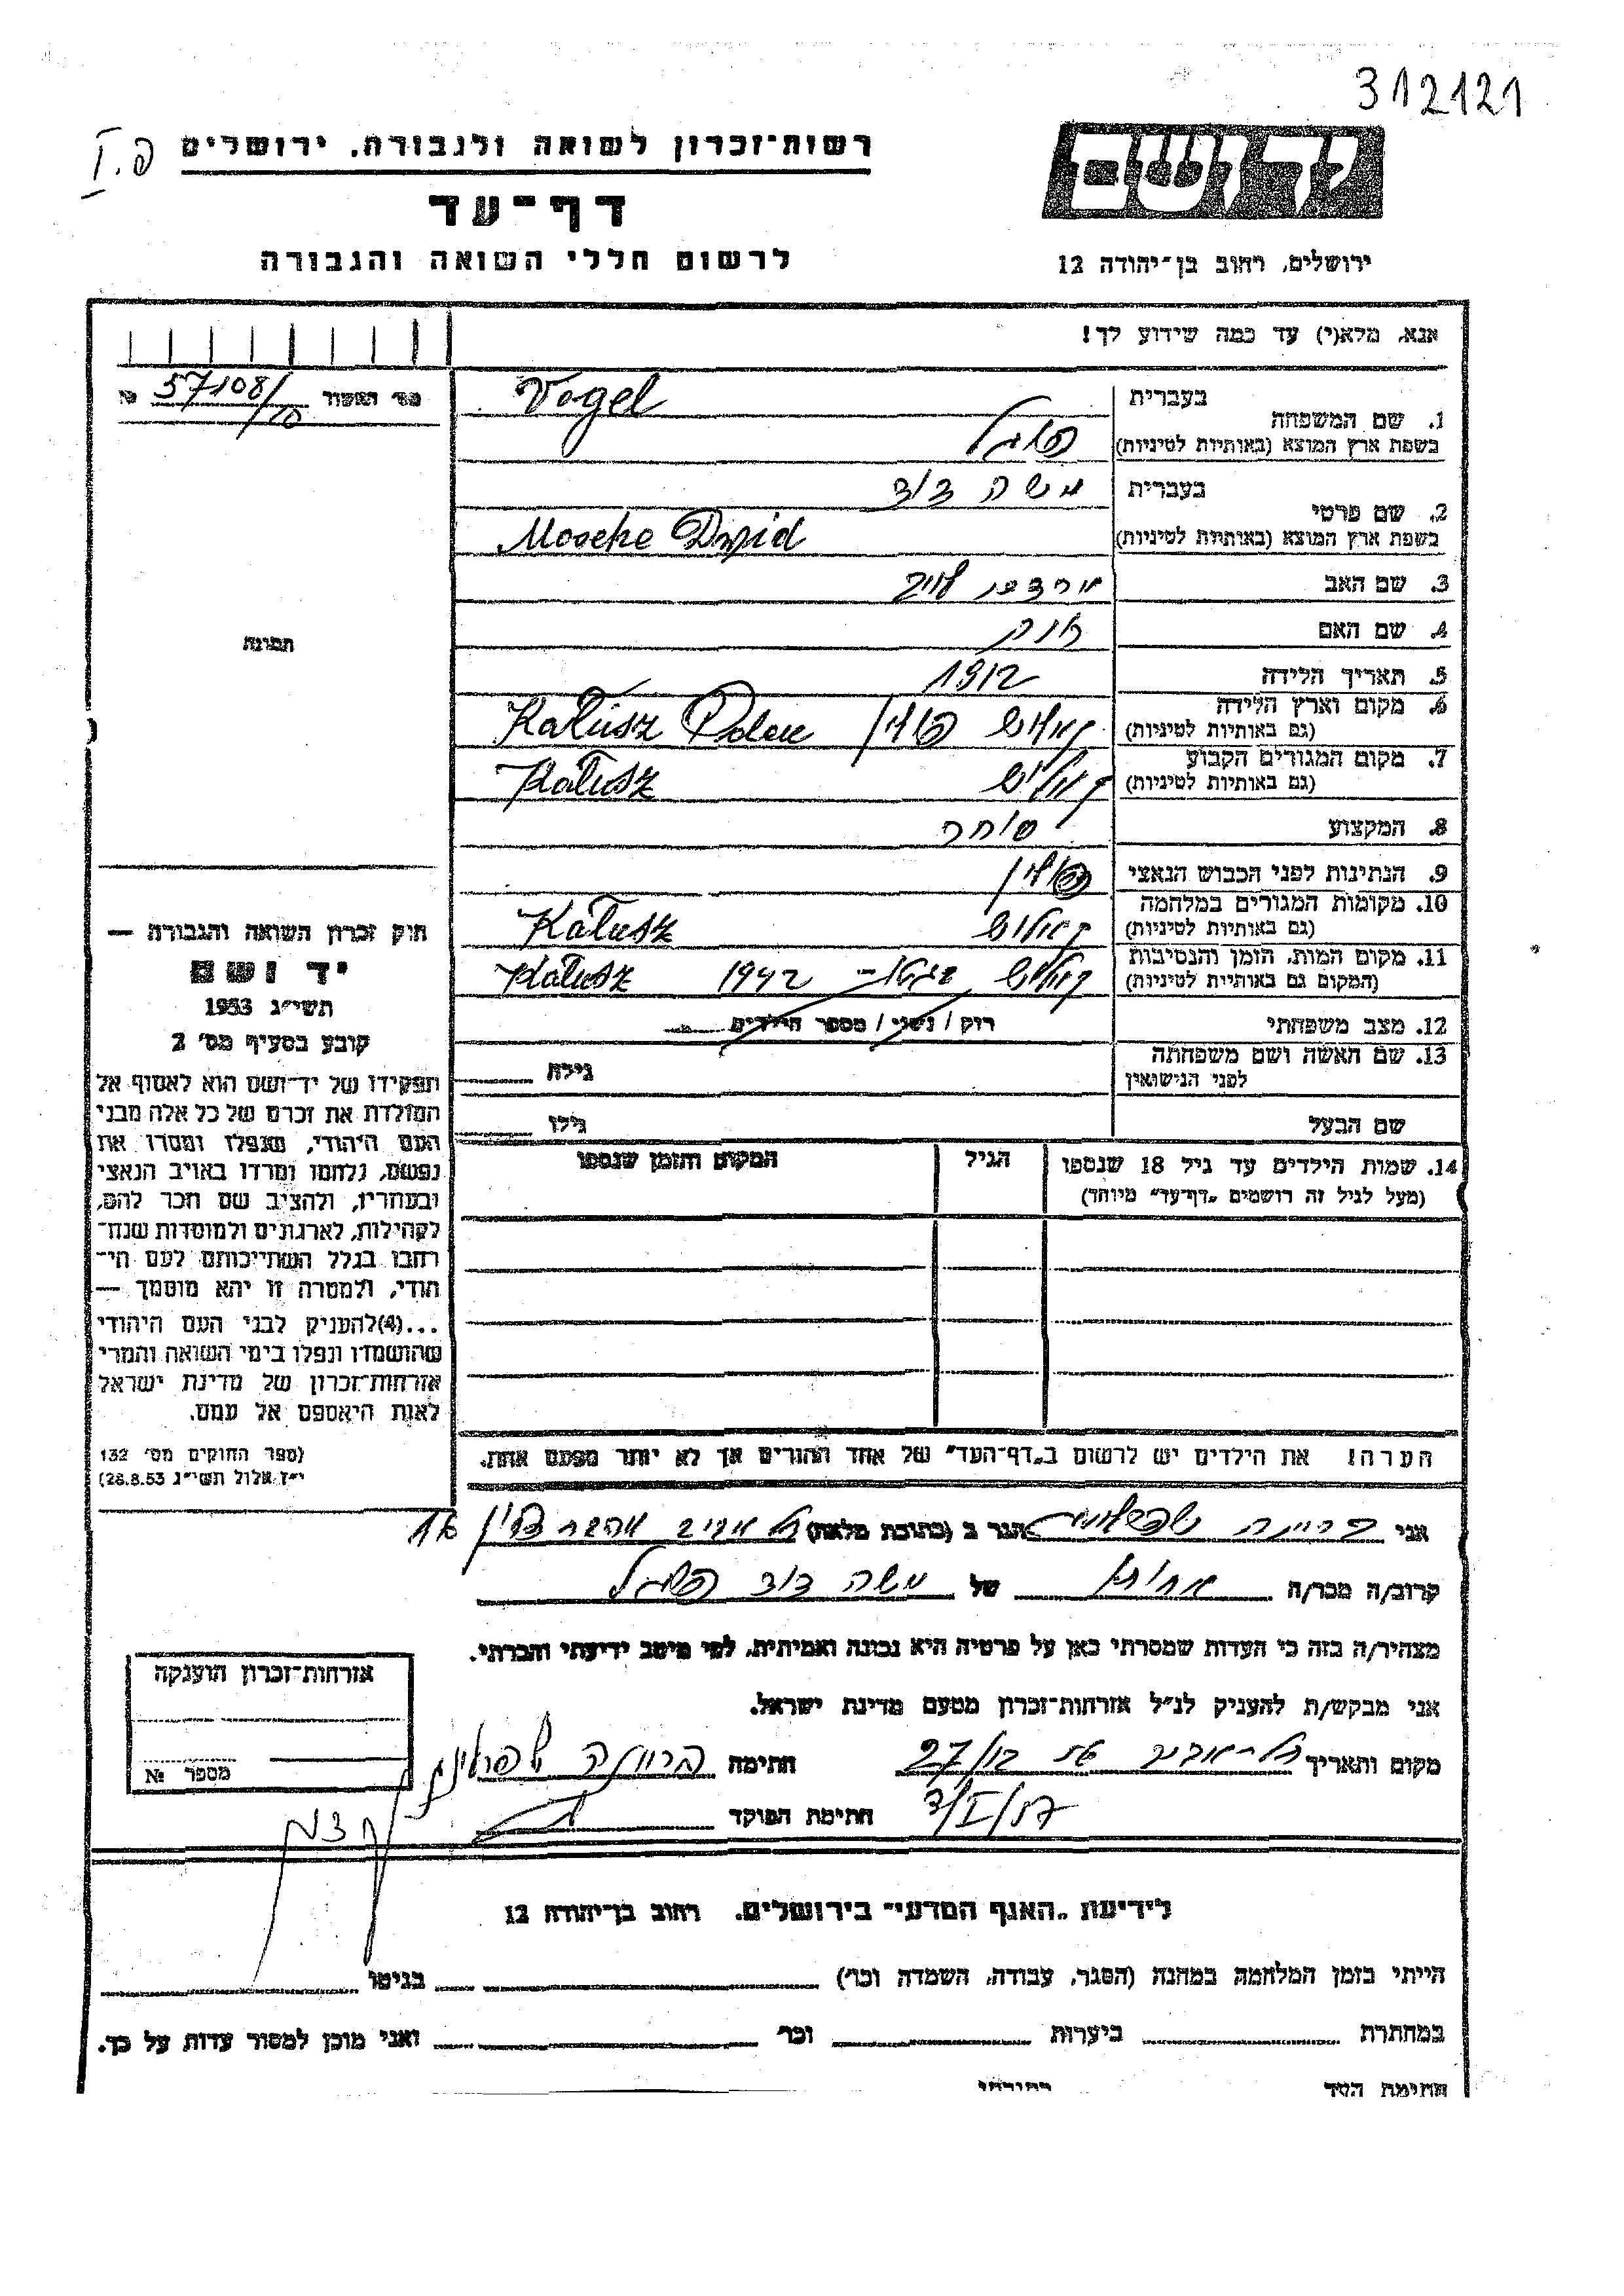 312121
פ. I
רשות־זכרון לשואה ולגבורה, ירושלים
יד ושם
דף־עד
לרשום חללי השואה והגבורה
ירושלים, רחוב בן־יהודה 12
אנא, מלא(י) עד כמה שידוע לך!
מס׳ האשור 57108/10 №
1. שם המשפחה
בעברית Vogel
בשפת ארץ המוצא (באותיות לטיניות) פוגל
2. שם פרטי
בעברית משה דוד
בשפת ארץ המוצא (באותיות לטיניות) Mosche Dawid
3. שם האב מרדכי
4. שם האם
5. תאריך הלידה 1912
6. מקום וארץ הלידה קאלוש פולין Kałusz Polen
(גם באותיות לטיניות)
7. מקום המגורים הקבוע קאלוש Kałusz
(גם באותיות לטיניות)
8. המקצוע סוחר
9. הנתינות לפני הכבוש הנאצי פולין
10. מקומות המגורים במלחמה קאלוש Kałusz
(גם באותיות לטיניות)
11. מקום המות, הזמן והנסיבות קאלוש 1942 Kałusz
(המקום גם באותיות לטיניות)
12. מצב משפחתי רווק / נשוי / מספר הילדים
13. שם האשה ושם משפחתה
לפני הנישואין גילה
שם הבעל גילו
14. שמות הילדים עד גיל 18 שנספו הגיל המקום והזמן שנספו
(מעל לגיל זה רושמים „דף־עד״ מיוחד)
הערה! את הילדים יש לרשום ב„דף־העד״ של אחד ההורים אך לא יותר מפעם אחת.
תמונה
חוק זכרון השואה והגבורה —
יד ושם
תשי״ג 1953
קובע בסעיף מס׳ 2
תפקידו של יד־ושם הוא לאסוף אל
המולדת את זכרם של כל אלה מבני
העם היהודי, שנפלו ומסרו את
נפשם, נלחמו ומרדו באויב הנאצי
ובעוזריו, ולהציב שם וזכר להם,
לקהילות, לארגונים ולמוסדות שנח־
רבו בגלל השתייכותם לעם הי־
הודי, ולמטרה זו יהא מוסמך —
...(4) להעניק לבני העם היהודי
שהושמדו ונפלו בימי השואה והמרי
אזרחות־זכרון של מדינת ישראל
לאות היאספם אל עמם.
(ספר החוקים מס׳ 132
י״ז אלול תשי״ג 28.8.53)
אני הגר ב (כתובת מלאה) תל אביב 16
קרוב/ה מכר/ה אחות של משה דוד פוגל
מצהיר/ה בזה כי העדות שמסרתי כאן על פרטיה היא נכונה ואמיתית, לפי מיטב ידיעתי והכרתי.
אני מבקש/ת להעניק לנ״ל אזרחות־זכרון מטעם מדינת ישראל.
מקום ותאריך תל־אביב חתימה
חתימת הפוקד
אזרחות־זכרון הוענקה
מספר №
לידיעת „האגף המדעי״ בירושלים, רחוב בן־יהודה 12
הייתי בזמן המלחמה במחנה (הסגר, עבודה, השמדה וכו׳) בגיטו
במחתרת ביערות וכו׳ ואני מוכן למסור עדות על כך.
חתימת העד